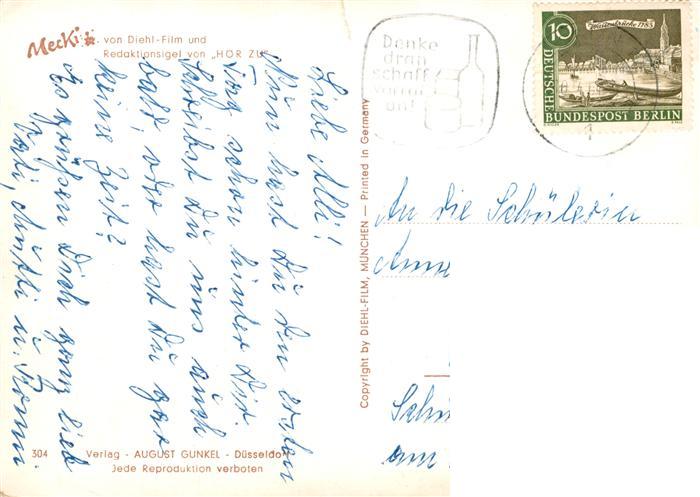 Mecki
von Diehl-Film und
Redaktionsigel von „HÖR ZU"
Liebe Alli!
Nun hast Du den ersten
Tag schon hinter Dir.
Schreibst Du uns auch
bald, oder hast Du gar
keine Zeit?
Es grüßen Dich ganz lieb
Vati, Mutti u. Romi.
304 Verlag - AUGUST GUNKEL - Düsseldorf
Jede Reproduktion verboten
Copyright by DIEHL-FILM, MÜNCHEN — Printed in Germany
Denke
dran
schaff'
Vorrat
an!
10
1783
DEUTSCHE
BUNDESPOST BERLIN
1
An die Schülerin
Anne
Schu
am